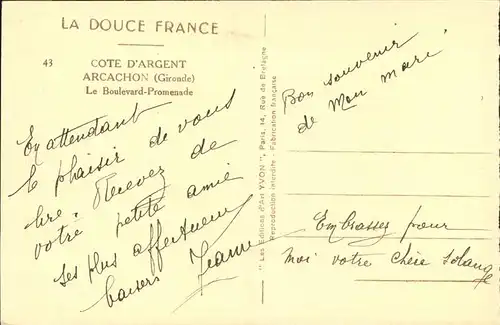 LA DOUCE FRANCE
43 COTE D'ARGENT
ARCACHON (Gironde)
Le Boulevard-Promenade
En attendant
le plaisir de vous
lire Recevez de
votre petite amie
ses plus affectueux
baisers Jeanne
" Les Editions d'Art YVON ", Paris, 14, Rue de Bretagne
Reproduction interdite - Fabrication française
Bon souvenir
de Mon Mari
Embrassez pour
moi votre Chère Solange